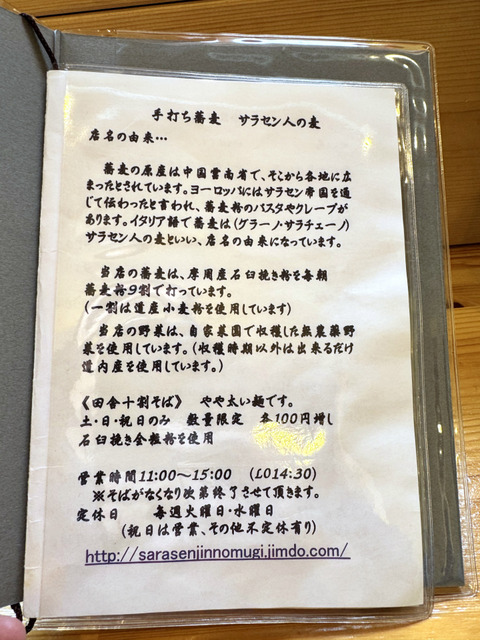 手打ち蕎麦　サラセン人の麦
店名の由来…
蕎麦の原産は中国雲南省で、そこから各地に広
まったとされています。ヨーロッパにはサラセン帝国を通
じて伝わったと言われ、蕎麦粉のパスタやクレープが
あります。イタリア語で蕎麦は(グラーノ・サラチェーノ)
サラセン人の麦といい、店名の由来になっています。
当店の蕎麦は、摩周産石臼挽き粉を毎朝
蕎麦粉9割で打っています。
(一割は道産小麦粉を使用しています)
当店の野菜は、自家菜園で収穫した無農薬野
菜を使用しています。(収穫時期以外は出来るだけ
道内産を使用しています。)
《田舎十割そば》　やや太い麺です。
土・日・祝日のみ　数量限定　各100円増し
石臼挽き全粒粉を使用
営業時間11:00～15:00　(LO14:30)
※そばがなくなり次第終了させて頂きます。
定休日　毎週火曜日・水曜日
(祝日は営業、その他不定休有り)
http://sarasenjinnomugi.jimdo.com/